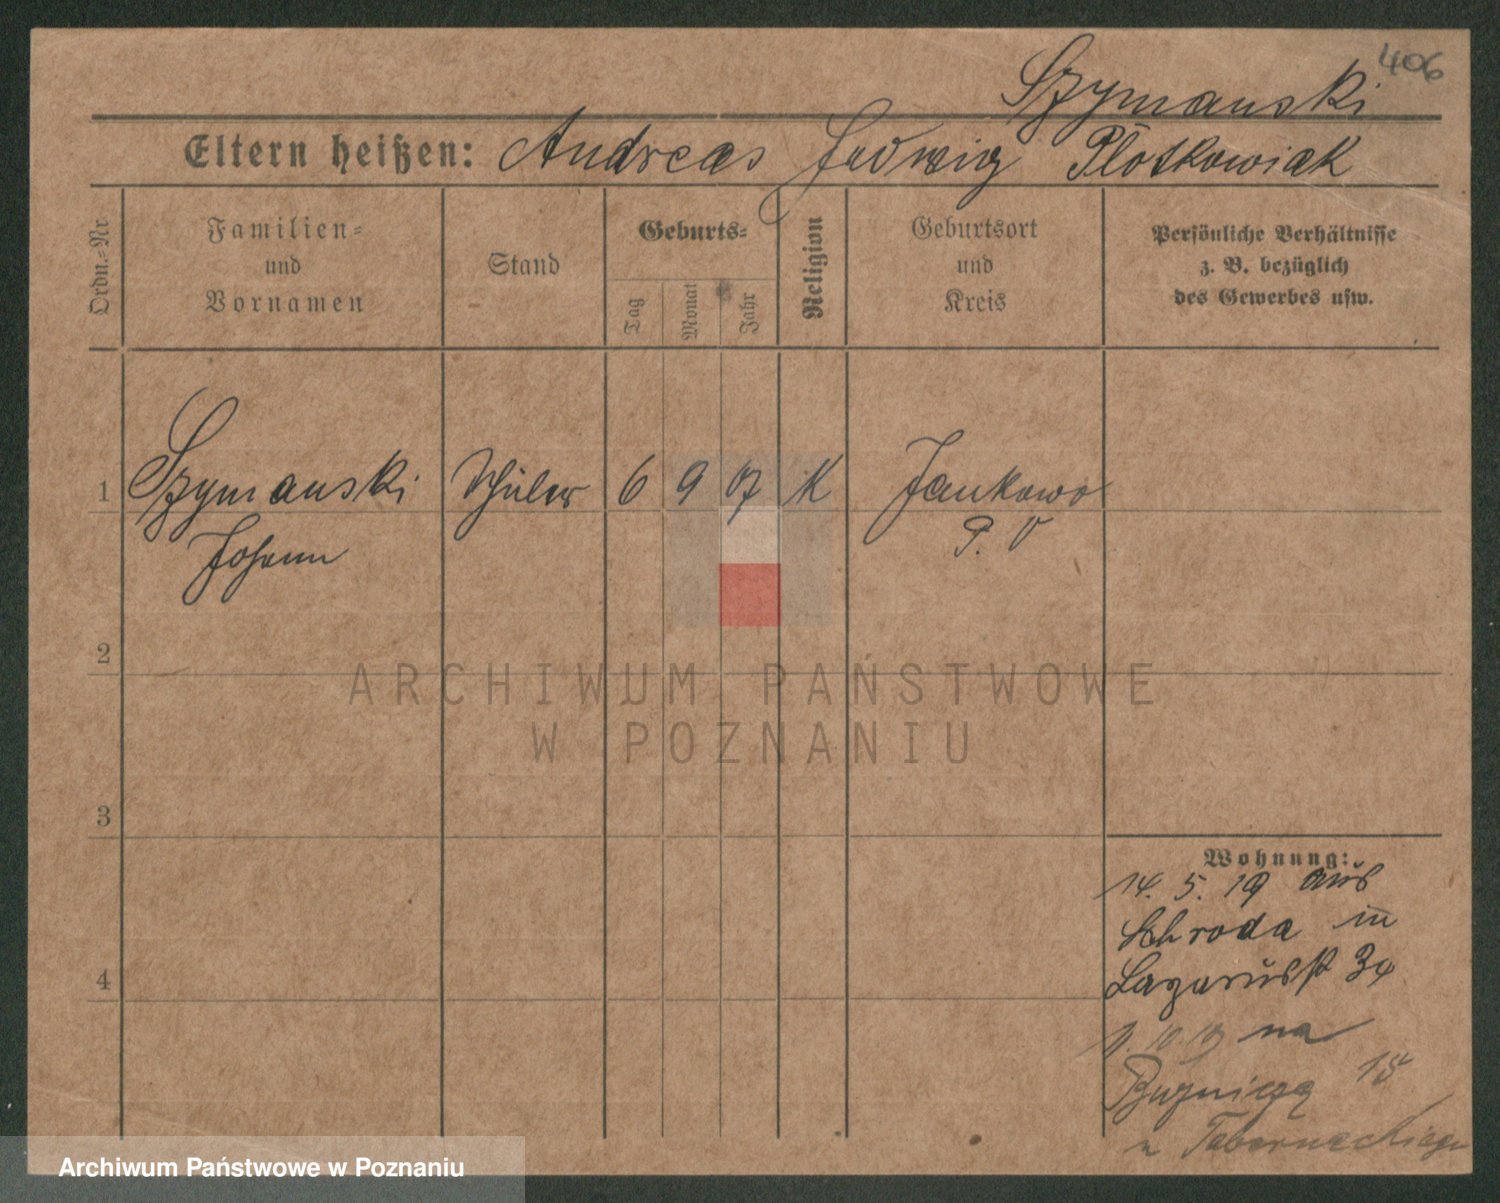 406
Szymanski
Eltern heißen: Andreas Hedwig Płotkowiak
Ordn.-Nr
Familien-
und
Vornamen
Stand
Geburts-
Tag
Monat
Jahr
Religion
Geburtsort
und
Kreis
Persönliche Verhältnisse
z. B. bezüglich
des Gewerbes usw.
1 Szymanski Schüler 6 9 07 K Jankowo
Johann P. O
2
ARCHIWUM PAŃSTWOWE
W POZNANIU
3
Wohnung:
14. 5. 19 aus
Schroda in
Lazarusst 34
4
1. 10. 19 na
15
u Tabernackiego
Archiwum Państwowe w Poznaniu